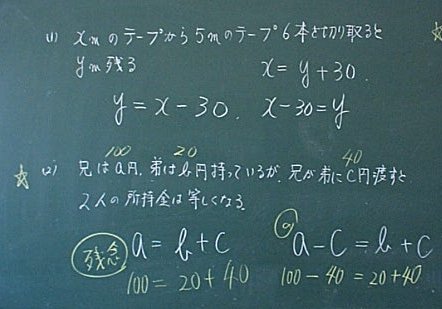 (1) xmのテープから5mのテープ6本を切り取ると
ym残る
x = y+30.
y = x-30. x-30=y
100 20 40
☆ (2) 兄はa円, 弟はb円持っているが, 兄が弟にc円渡すと
2人の所持金は等しくなる.
残念 a = b+c
100=20+40
a-c=b+c
100-40=20+40